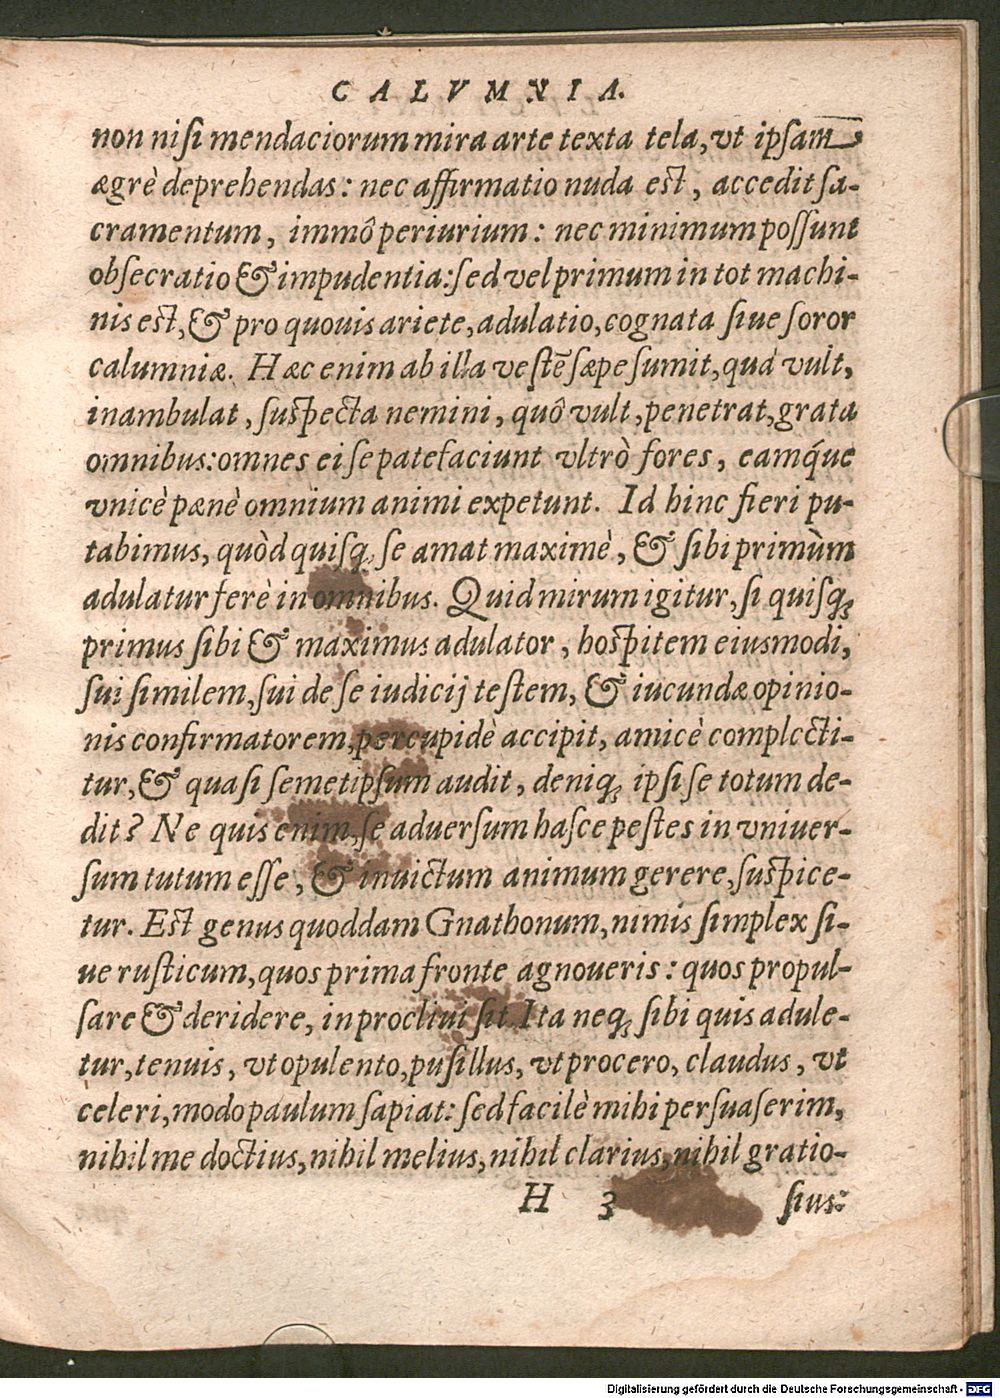 CALVMNIA.
non nisi mendaciorum mira arte texta tela, vt ipsam
ægrè deprehendas: nec affirmatio nuda est, accedit sa-
cramentum, immô periurium: nec minimum possunt
obsecratio & impudentia: sed vel primum in tot machi-
nis est, & pro quouis ariete, adulatio, cognata siue soror
calumniæ. Hæc enim ab illa vestē sæpe sumit, quá vult,
inambulat, suspecta nemini, quô vult, penetrat, grata
omnibus: omnes ei se patefaciunt vltrò fores, eamq́ue
vnicè pænè omnium animi expetunt. Id hinc fieri pu-
tabimus, quòd quisq; se amat maximè, & sibi primùm
adulatur ferè in omnibus. Quid mirum igitur, si quisq;
primus sibi & maximus adulator, hospitem eiusmodi,
sui similem, sui de se iudicij testem, & iucundæ opinio-
nis confirmatorem, percupidè accipit, amicè complecti-
tur, & quasi semetipsum audit, deniq; ipsi se totum de-
dit? Ne quis enim, se aduersum hasce pestes in vniuer-
sum tutum esse, & inuictum animum gerere, suspice-
tur. Est genus quoddam Gnathonum, nimis simplex si-
ue rusticum, quos prima fronte agnoueris: quos propul-
sare & deridere, in procliui sit. Ita neq; sibi quis adule-
tur, tenuis, vt opulento, pusillus, vt procero, claudus, vt
celeri, modo paulum sapiat: sed facilè mihi persuaserim,
nihil me doctius, nihil melius, nihil clarius, nihil gratio-
H 3 sius:
Digitalisierung gefördert durch die Deutsche Forschungsgemeinschaft - DFG